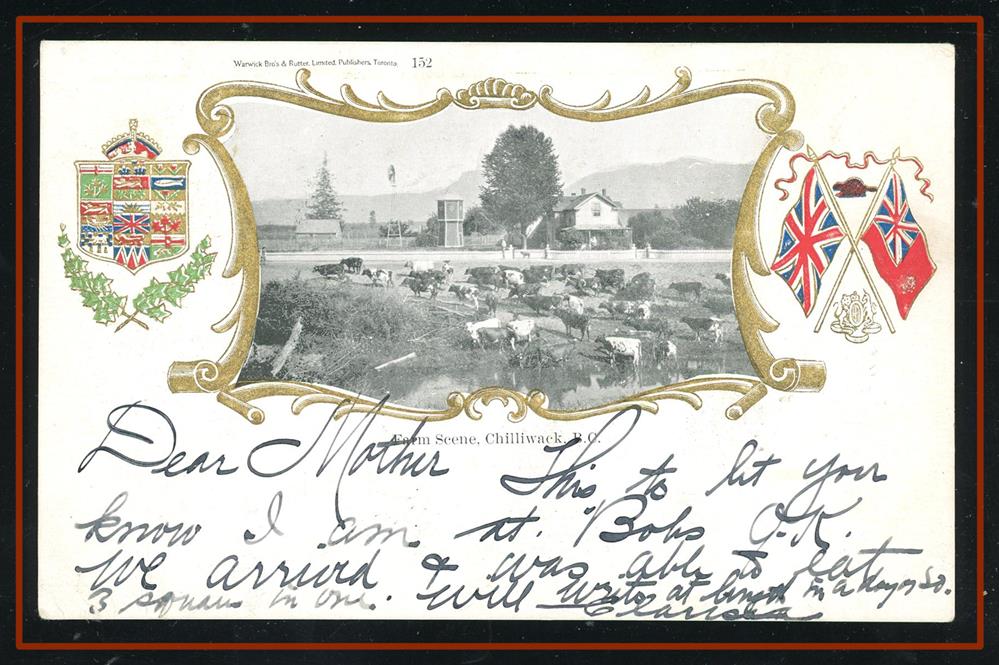 Warwick Bro's & Rutter, Limited, Publishers, Toronto. 152
Farm Scene, Chilliwack, B.C.
Dear Mother This to let your
know I am at Bobs O.K.
We arrived & was able to eat
3 squars in one. Will write at length in a day or so.